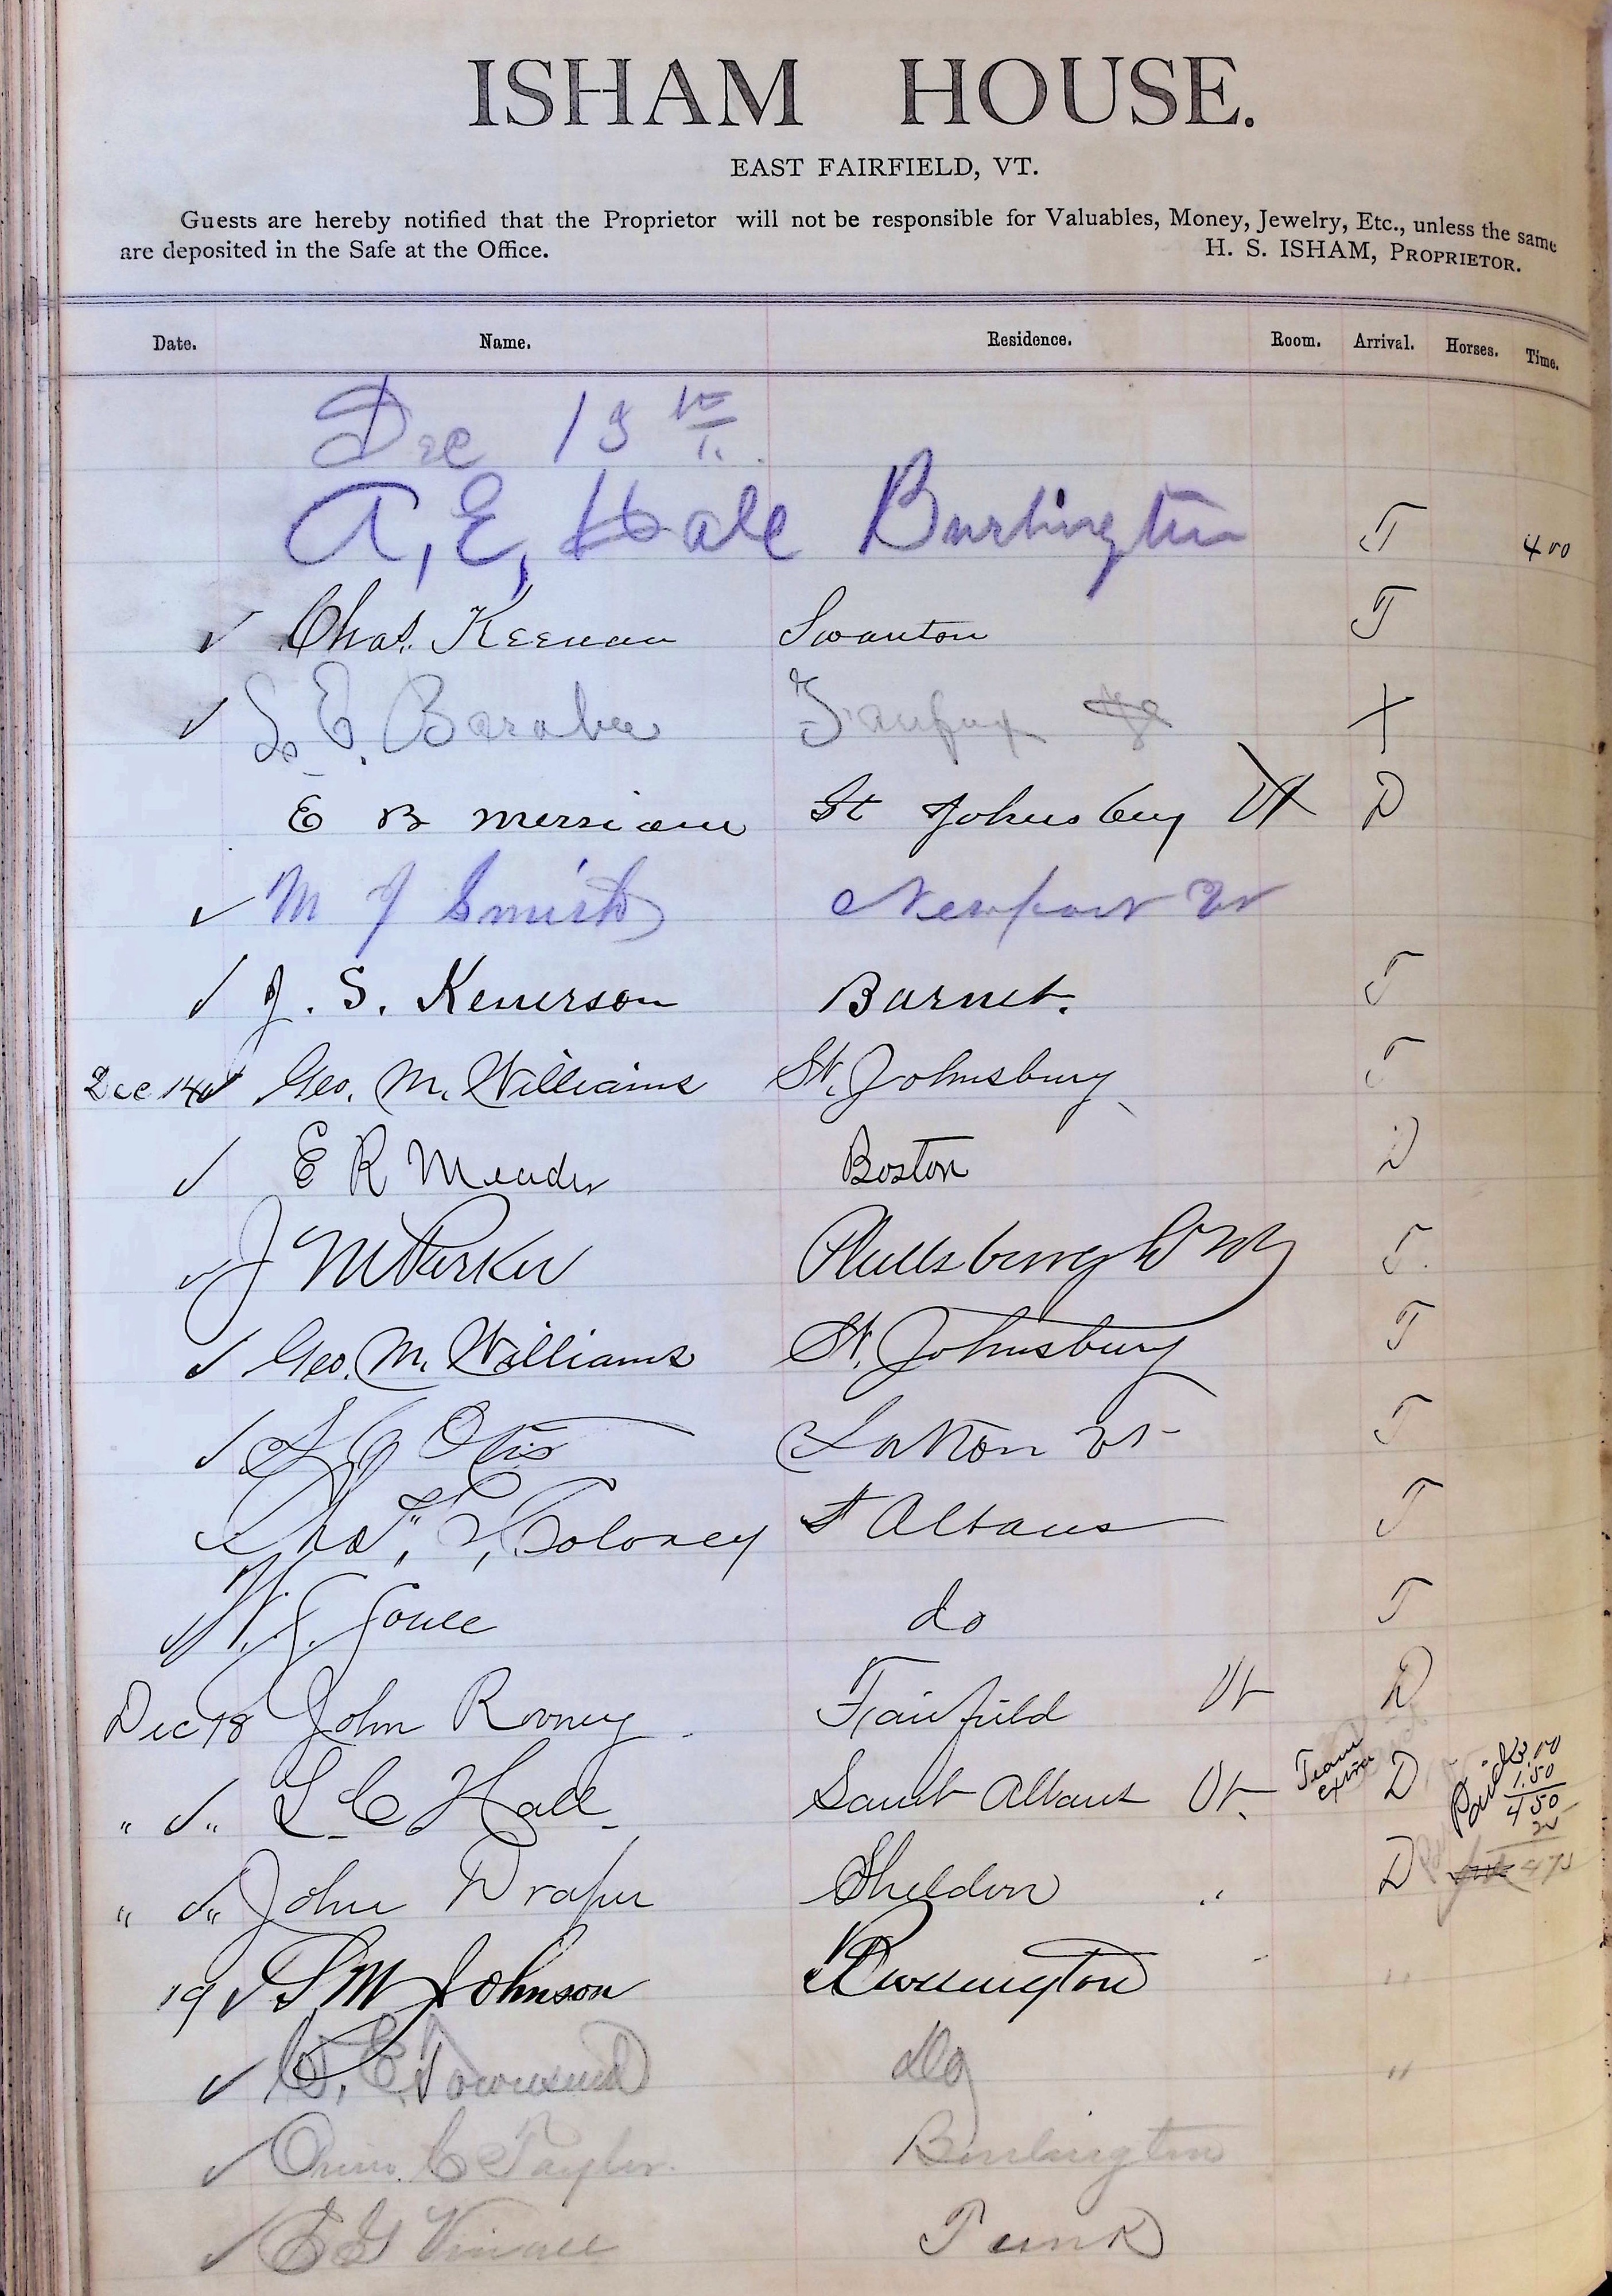 ISHAM HOUSE.
EAST FAIRFIELD, VT.
Guests are hereby notified that the Proprietor will not be responsible for Valuables, Money, Jewelry, Etc., unless the same
are deposited in the Safe at the Office. H. S. ISHAM, PROPRIETOR.
Date. Name. Residence. Room. Arrival. Horses. Time.
Dec 13th
A, E, Hale Burlington T 400
✓ Chas. Keenan Swanton T
✓ S. E. Baraber Fairfax X
E B Merriam St Johnsbury Vt D
✓ M J Smith Newport Vt
✓ J. S. Kenerson Barnet. T
Dec 14 ✓ Geo. M. Williams St. Johnsbury T
✓ E R Meader Boston D
✓ J M Parker Plattsburgh NY T.
✓ Geo. M. Williams St. Johnsbury T
✓ Otis Vt T
Coloney St Albans T
✓ W. J. Joyce do T
Dec 18 John Rooney Fairfield Vt D
" ✓ " L. C. Hall Saint Albans Vt. Team extra D Paid 3.00
1.50
4 50
25
" ✓ " John Draper Sheldon " D 475
19 ✓ S M Johnson Burlington "
✓ C. E. Townsend Do "
✓ C Taylor. Burlington
✓ E G